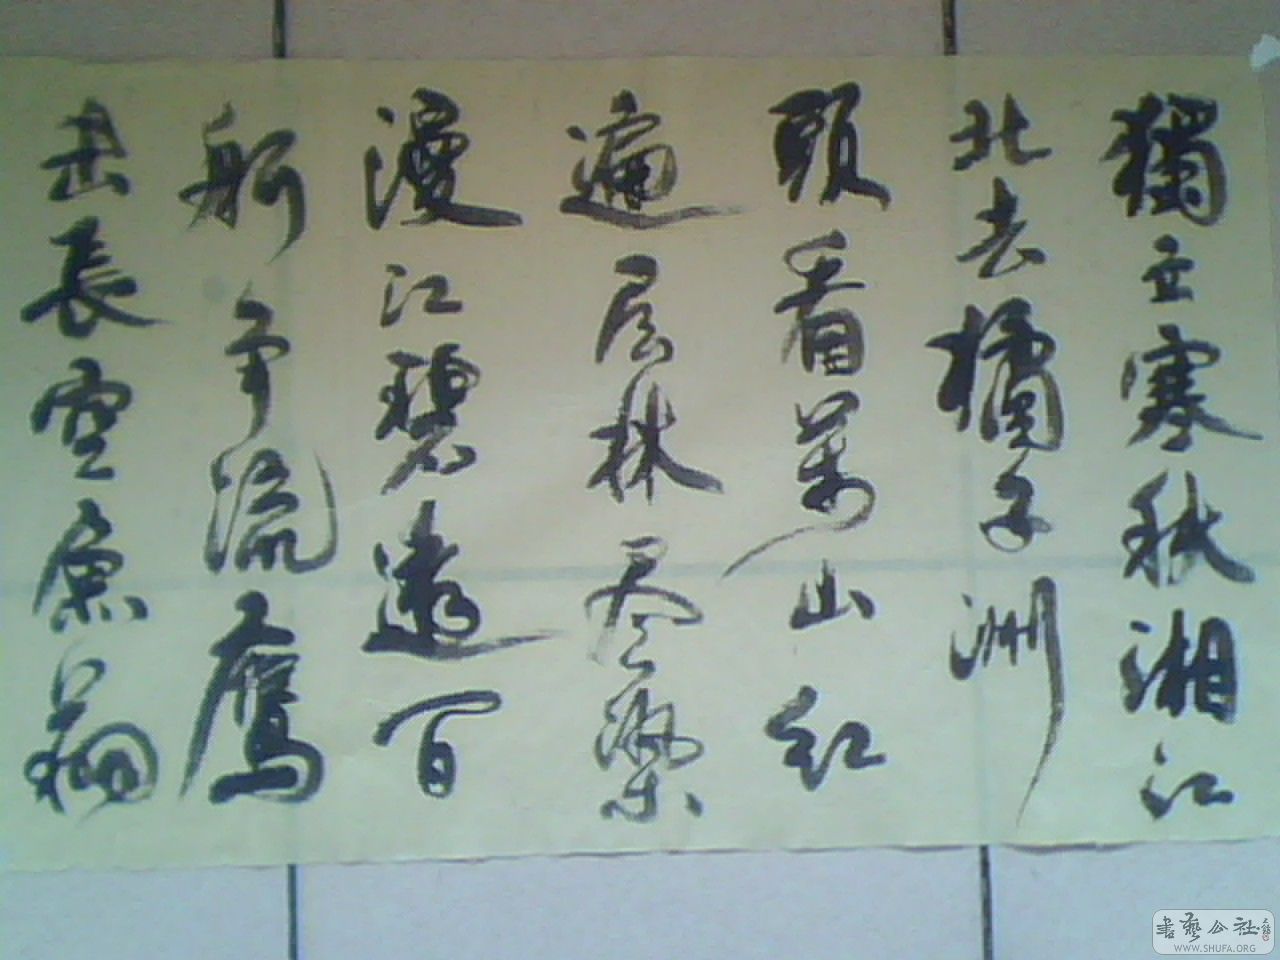 獨立寒秋湘江
北去橘子洲
頭看萬山红
遍层林尽染
漫江碧透百
舸争流鷹
击長空魚翔
書藝公社
WWW.SHUFA.ORG